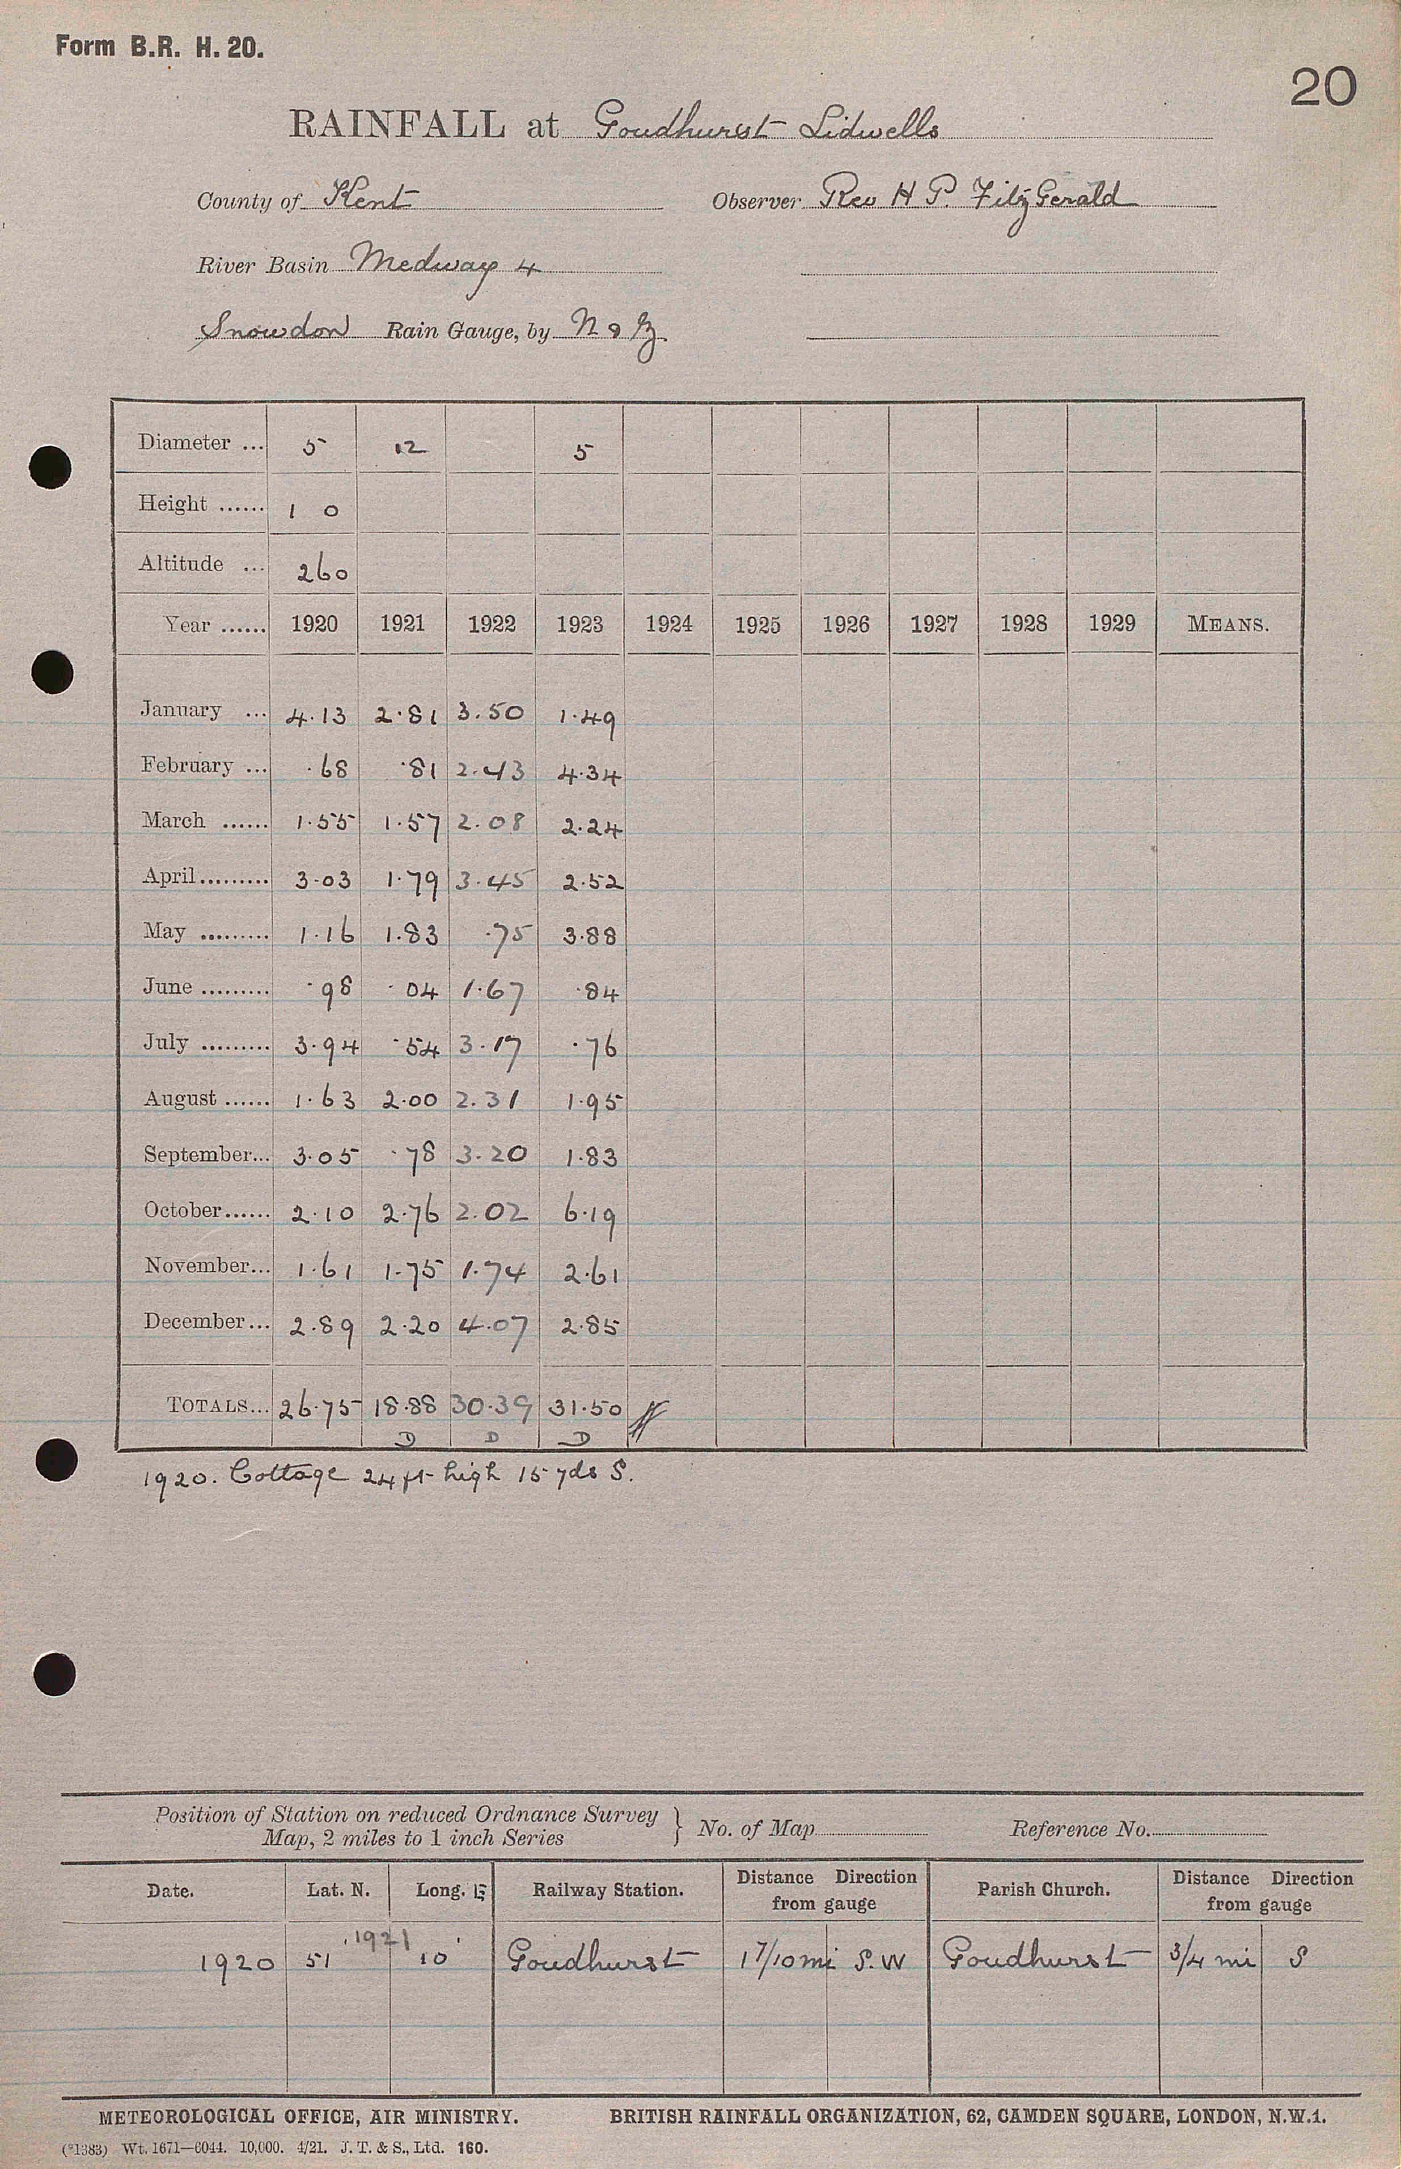 Form B.R. H. 20.
20
RAINFALL at Goudhurst Lidwells
County of Kent Observer Rev H P. FitzGerald
River Basin Medway 4
Snowdon Rain Gauge, by N & Z
Diameter ... 5 12 5
Height ...... 1 0
Altitude ... 260
Year ...... 1920 1921 1922 1923 1924 1925 1926 1927 1928 1929 MEANS.
January ... 4.13 2.81 3.50 1.49
February ... .68 .81 2.43 4.34
March ...... 1.55 1.57 2.08 2.24
April ......... 3.03 1.79 3.45 2.52
May ......... 1.16 1.83 .75 3.88
June ......... .98 .04 1.67 .84
July ......... 3.94 .54 3.17 .76
August ...... 1.63 2.00 2.31 1.95
September... 3.05 .78 3.20 1.83
October...... 2.10 2.76 2.02 6.19
November... 1.61 1.75 1.74 2.61
December... 2.89 2.20 4.07 2.85
TOTALS... 26.75 18.88 30.39 31.50
D D D
1920. Cottage 24 ft high 15 yds S.
Position of Station on reduced Ordnance Survey
Map, 2 miles to 1 inch Series } No. of Map Reference No.
Date. Lat. N. Long. E Railway Station. Distance Direction from gauge Parish Church. Distance Direction from gauge
1921
1920 51 10' Goudhurst 1 7/10 mi S.W Goudhurst 3/4 mi S
METEOROLOGICAL OFFICE, AIR MINISTRY. BRITISH RAINFALL ORGANIZATION, 62, CAMDEN SQUARE, LONDON, N.W.1.
(*1383) Wt. 1671—6044. 10,000. 4/21. J. T. & S., Ltd. 160.